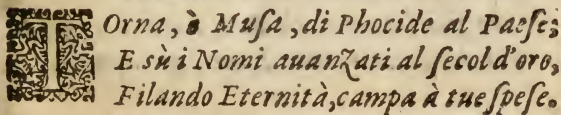 TOrna, ò Muſa, di Phocide al Paeſe;
E sù i Nomi auanzati al ſecol d'oro,
Filando Eternità, campa à tue ſpeſe.